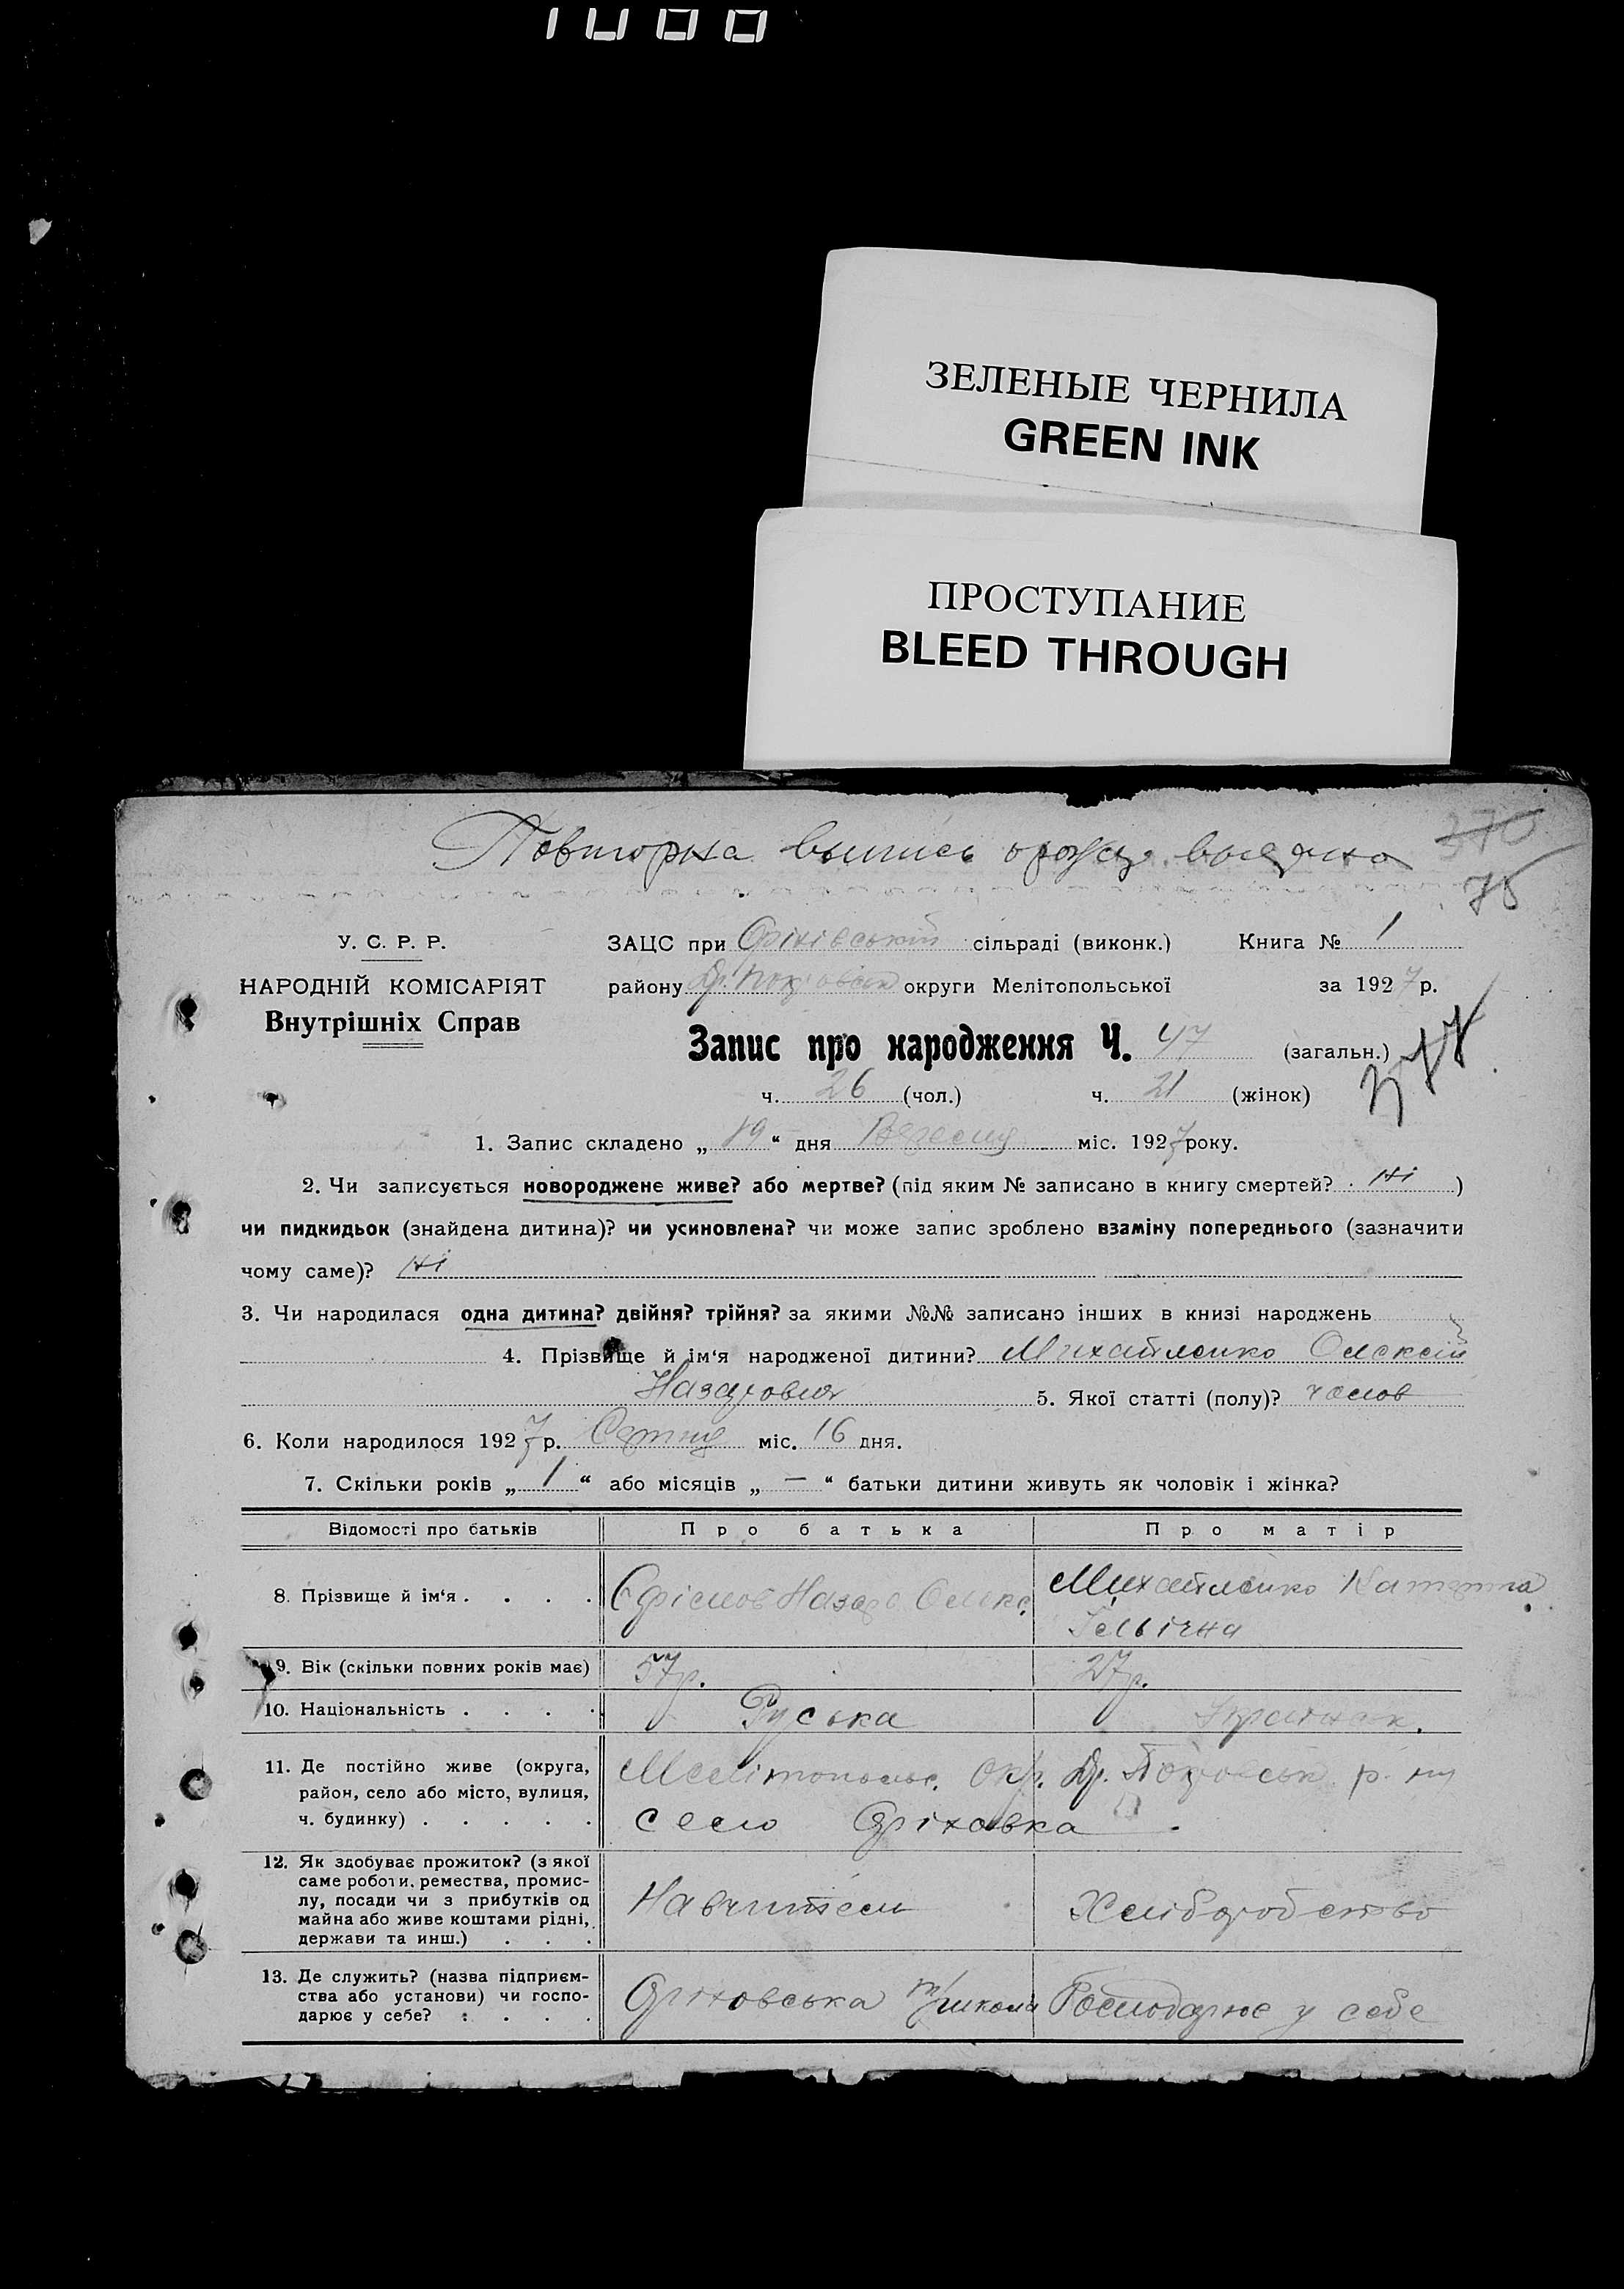 1000
ЗЕЛЕНЫЕ ЧЕРНИЛА
GREEN INK
ПРОСТУПАНИЕ
BLEED THROUGH
Повторна выпись
370
75
У. С. Р. Р.
НАРОДНІЙ КОМІСАРІЯТ
Внутрішніх Справ
ЗАЦС при сільраді (виконк.) Книга № 1
району округи Мелітопольської за 1927 р.
Запис про народження Ч. 47 (загальн.)
ч. 26 (чол.) ч. 21 (жінок)
1. Запис складено „19“ дня Вересня міс. 1927 року.
2. Чи записується новороджене живе? або мертве? (під яким № записано в книгу смертей? ні )
чи пидкидьок (знайдена дитина)? чи усиновлена? чи може запис зроблено взаміну попереднього (зазначити
чому саме)? ні
3. Чи народилася одна дитина? двійня? трійня? за якими №№ записано інших в книзі народжень
4. Прізвище й ім‘я народженої дитини? Михайленко Олексій
Назарович 5. Якої статті (полу)? чолов
6. Коли народилося 1927 р. міс. 16 дня.
7. Скільки років „ 1 “ або місяців „ — “ батьки дитини живуть як чоловік і жінка?
Відомості про батьків Про батька Про матір
8. Прізвище й ім‘я . . . . Назар Михайленко
9. Вік (скільки повних років має) 57р. 27р.
10. Національність . . . . Руська Українськ.
11. Де постійно живе (округа,
район, село або місто, вулиця,
ч. будинку) . . . . .
Мелітопольс. Окр.
село
12. Як здобуває прожиток? (з якої
саме роботи, ремества, промис-
лу, посади чи з прибутків од
майна або живе коштами рідні,
держави та инш.) . . .
Навчитель Хліборобство
13. Де служить? (назва підприєм-
ства або установи) чи госпо-
дарює у себе? : . . .
школа Господарює у себе